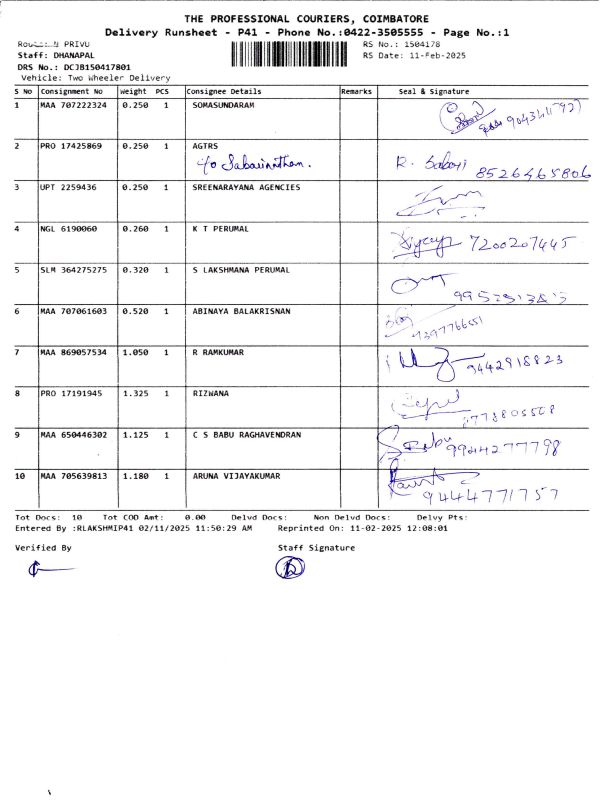 THE PROFESSIONAL COURIERS, COIMBATORE
Delivery Runsheet - P41 - Phone No.:0422-3505555 - Page No.:1
PRIVU RS No.: 1504178
Staff: DHANAPAL RS Date: 11-Feb-2025
DRS No.: DCJB150417801
Vehicle: Two Wheeler Delivery
S NO Consignment No Weight PCS Consignee Details Remarks Seal & Signature
1 MAA 707222324 0.250 1 SOMASUNDARAM
2 PRO 17425869 0.250 1 AGTRS R. Sabari 8526465806
3 UPT 2259436 0.250 1 SREENARAYANA AGENCIES
4 NGL 6190060 0.260 1 K T PERUMAL 7200207445
5 SLM 364275275 0.320 1 S LAKSHMANA PERUMAL
6 MAA 707061603 0.520 1 ABINAYA BALAKRISNAN 9397766551
7 MAA 869057534 1.050 1 R RAMKUMAR 9442918823
8 PRO 17191945 1.325 1 RIZWANA
9 MAA 650446302 1.125 1 C S BABU RAGHAVENDRAN Babu 9944277798
10 MAA 705639813 1.180 1 ARUNA VIJAYAKUMAR 9444771757
Tot Docs: 10 Tot COD Amt: 0.00 Delvd Docs: Non Delvd Docs: Delvy Pts:
Entered By :RLAKSHMIP41 02/11/2025 11:50:29 AM Reprinted On: 11-02-2025 12:08:01
Verified By Staff Signature